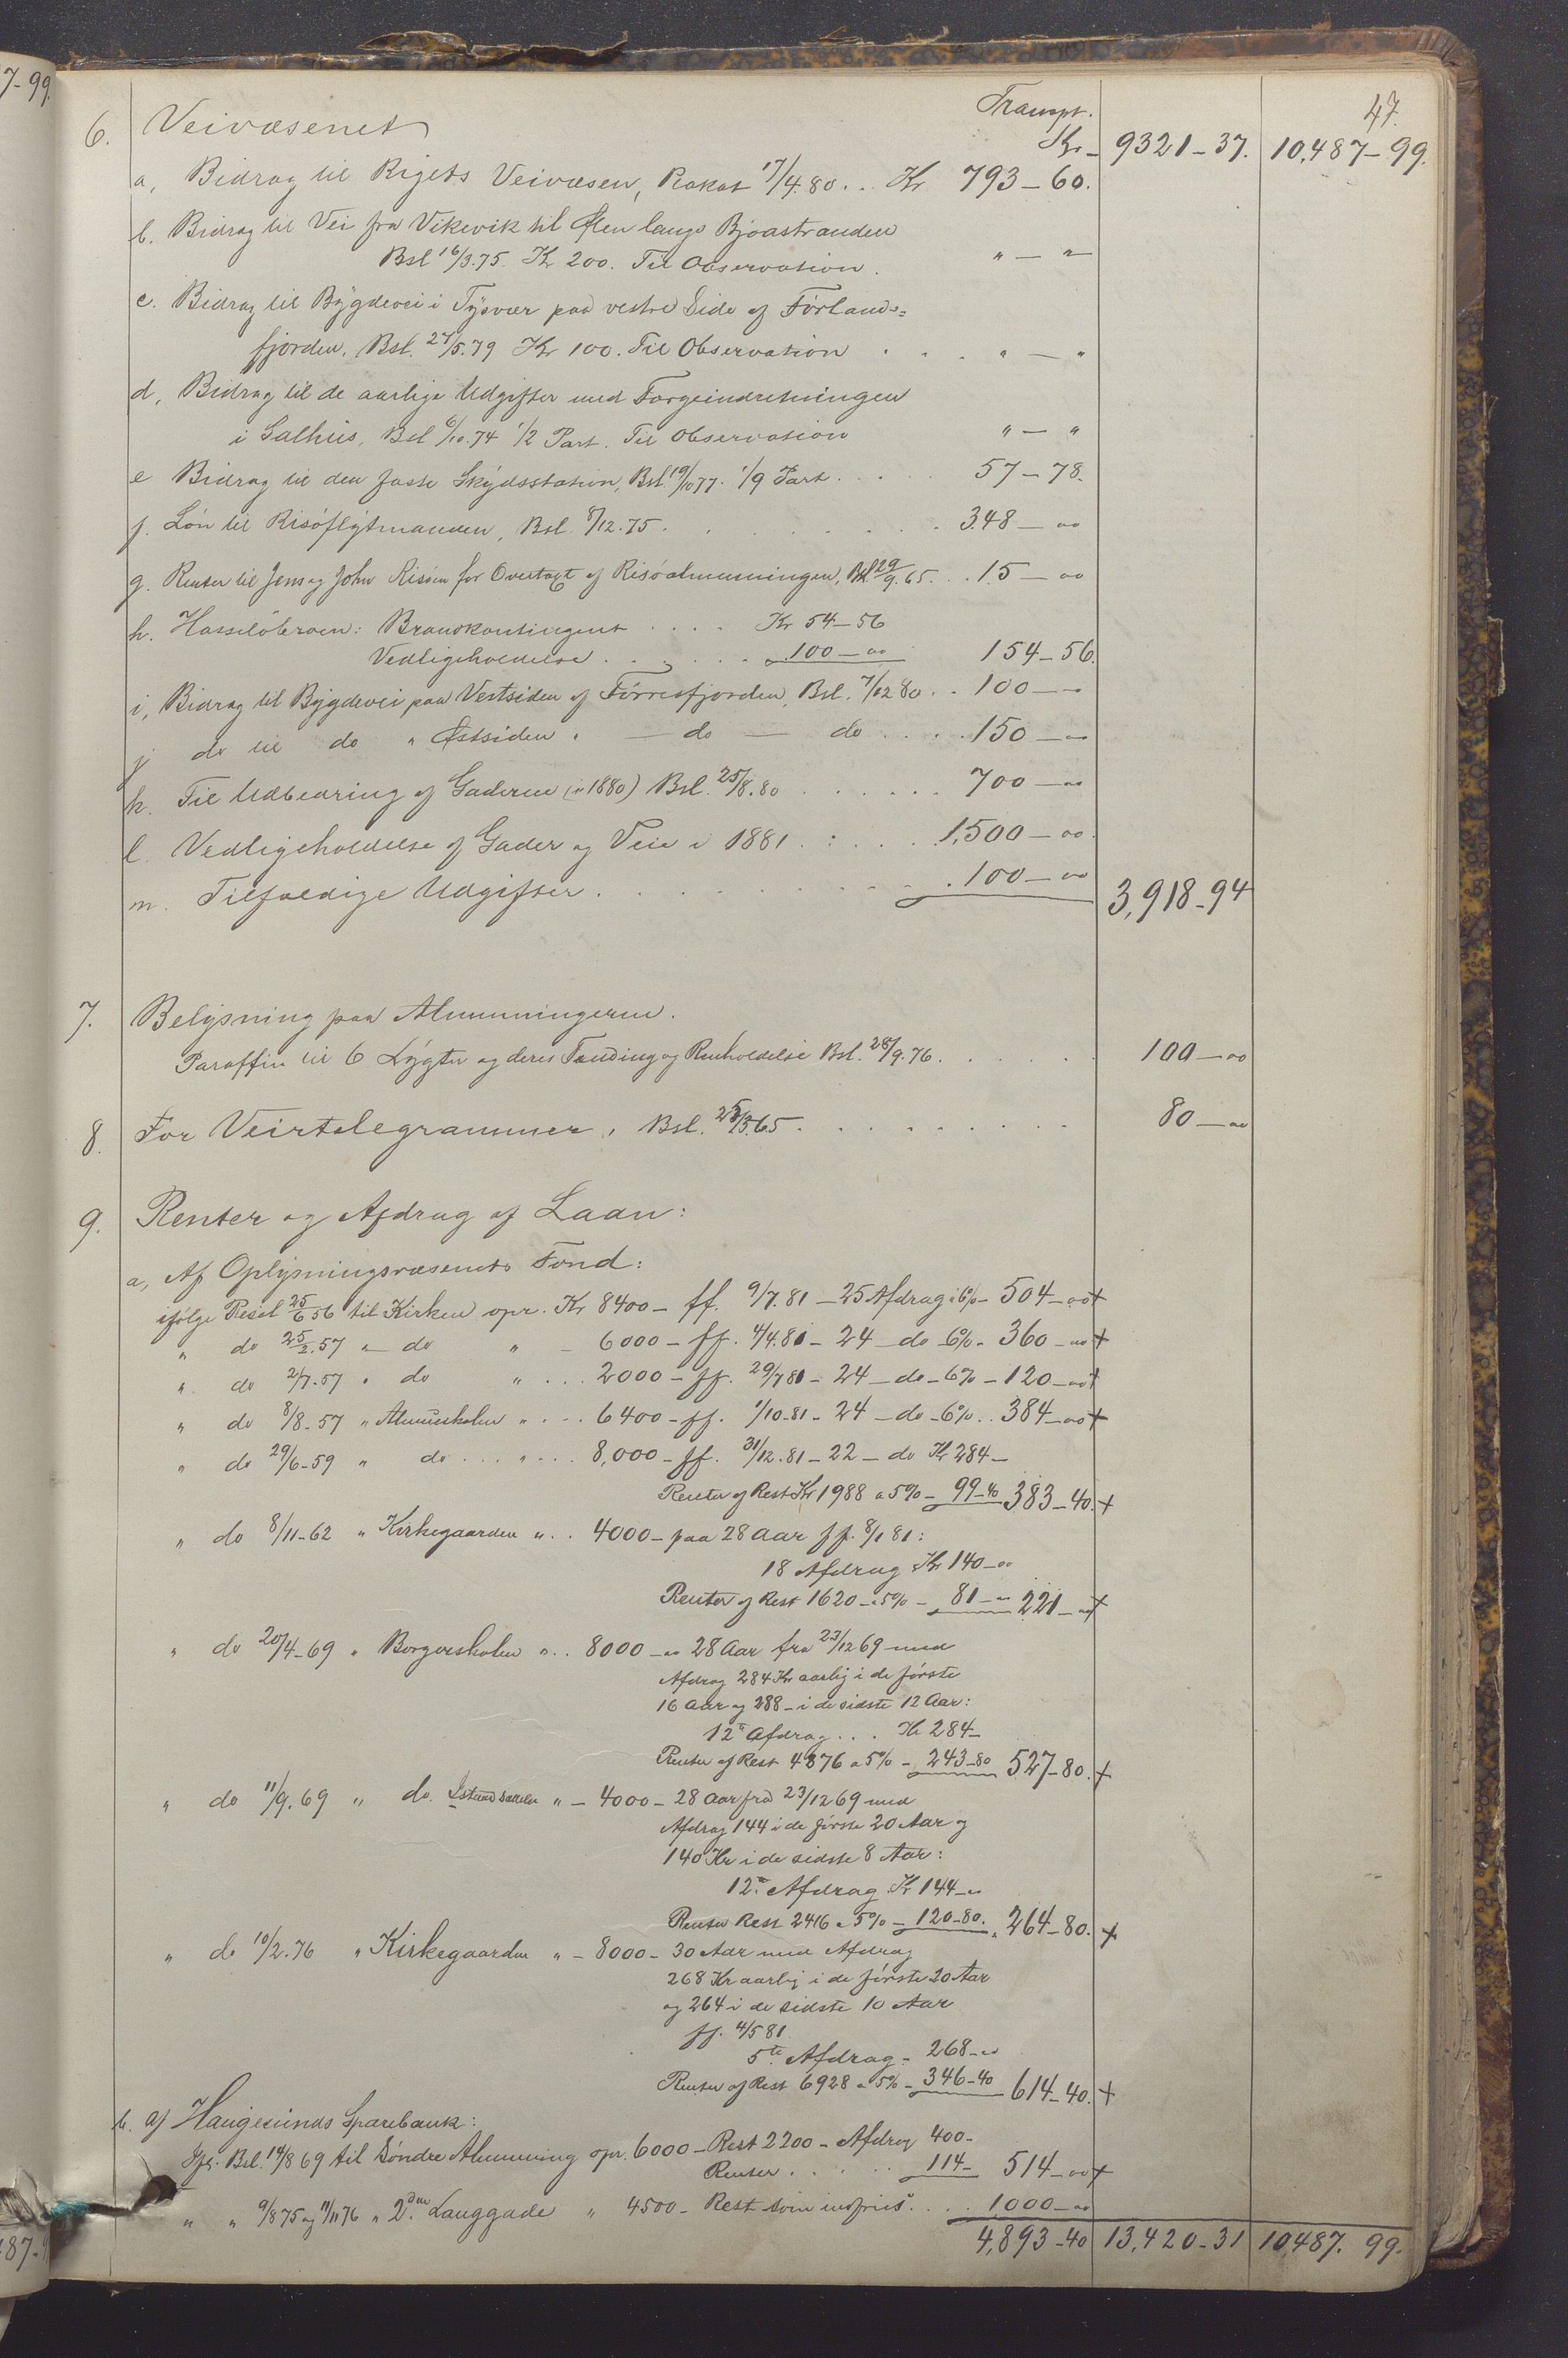 7-99.
47.
Transpt.
6. Veivæsenet Kr - 9321-37. 10,487-99.
a, Bidrag til Rigets Veivæsen, Plakat 17/4.80 . . Kr 793-60.
b. Bidrag til Vei fra Vikevik til Ølen langs Bjoastranden
Bsl 16/3.75. Kr 200. Til Observation. " — "
c. Bidrag til Bygdevei i Tysvær paa vestre Side af Førlands=
fjorden. Bsl. 27/5.79 Kr 100. Til Observation . . . " — "
d, Bidrag til de aarlige Udgifter med Færgeindretningen
i Salhus, Bsl 6/10.74 1/2 Part. Til Observation " — "
e Bidrag til den faste Skydsstation, Bsl 19/10 77. 1/9 Part . . . . 57-78.
f. Løn til Risøfløtmanden, Bsl. 8/12.75 . . . . . . 348-00
g. Renter til Jens og John Risøen for Overtagt af Risøalmenningen, Bsl. 29/9.65. . . 15-00
h. Hasseløbroen: Brandkontingent . . . . Kr 54-56
Vedligeholdelse . . . . . . 100-00 154-56.
i, Bidrag til Bygdevei paa Vestsiden af Førresfjorden, Bsl. 7/12 80 . . 100-00
j do til do " Østsiden " — do — do . . . . 150-00
k. Til Udbedring af Gaderne (i 1880) Bsl. 25/8.80 . . . . . . 700-00
l. Vedligeholdelse af Gader og Veie i 1881 . : . . . 1,500-00.
m. Tilfældige Udgifter . . . . . . . . . 100-00 3,918-94
7. Belysning paa Almenningerne.
Paraffin til 6 Lygter og deres Tænding og Renholdelse Bsl. 28/9.76 . . . . . . 100-00
8. For Veirtelegrammer, Bsl. /3.65 . . . . . . . . . 80-00
9. Renter og Afdrag af Laan:
a, Af Oplysningsvæsenets Fond:
ifølge Resol 25/6 56 til Kirken opr. Kr 8400 - ff. 9/7.81 - 25 Afdrag a 6% - 504-00 +
" do 25/2.57 " do " - 6000 - ff. 4/4.81 - 24 - do - 6% - 360-00 +
" do 2/7.57 " do " . . . 2000 - ff. 29/7 81 - 24 - do - 6% - 120-00 +
" do 8/8-57 " Almueskolen " . . . 6400 - ff. 1/10-81 - 24 - do - 6% . . 384-00 +
" do 29/6-59 " do . . . " . . . 8,000 - ff. 31/12.81 - 22 - do Kr 284-
Renter af Rest Kr 1988 a 5% - 99-40 383-40. +
" do 8/11-62 " Kirkegaarden " . . 4000 - paa 28 Aar ff. 8/1 81:
18 Afdrag Kr 140-00
Renter af Rest 1620 - a 5% - 81-00 221-00 +
" do 20/4-69 " Borgerskolen " . . 8000 - 28 Aar fra 23/12 69 med
Afdrag 284 Kr aarlig i de første
16 Aar og 288 - i de sidste 12 Aar:
12te Afdrag . . . Kr 284-
Renter af Rest 4876 a 5% - 243-80 527-80. +
" do 11/9.69 " do. " - 4000 - 28 Aar fra 23/12 69 med
Afdrag 144 i de første 20 Aar og
140 Kr i de sidste 8 Aar:
12te Afdrag Kr 144-00
Renter Rest 2416 a 5% - 120-80. " 264-80. +
" do 10/2.76 " Kirkegaarden " - 8000 - 30 Aar med Afdrag
268 Kr aarlig i de første 20 Aar
og 264 i de sidste 10 Aar
ff. 4/5 81
5te Afdrag - 268-00
Renter af Rest 6928 a 5% - 346-40 614-40. +
b. af Haugesunds Sparebank:
Ifl. Bsl. 14/8 69 til Søndre Almenning opr. 6000 - Rest 2200 - Afdrag 400-
Renter . . . . . 114- 514-00 +
" " 9/8 75 og 11/11 76 " 2den Langgade " 4500 - Rest som indfries . . . 1000-00
4,893-40 13,420-31 10487. 99.